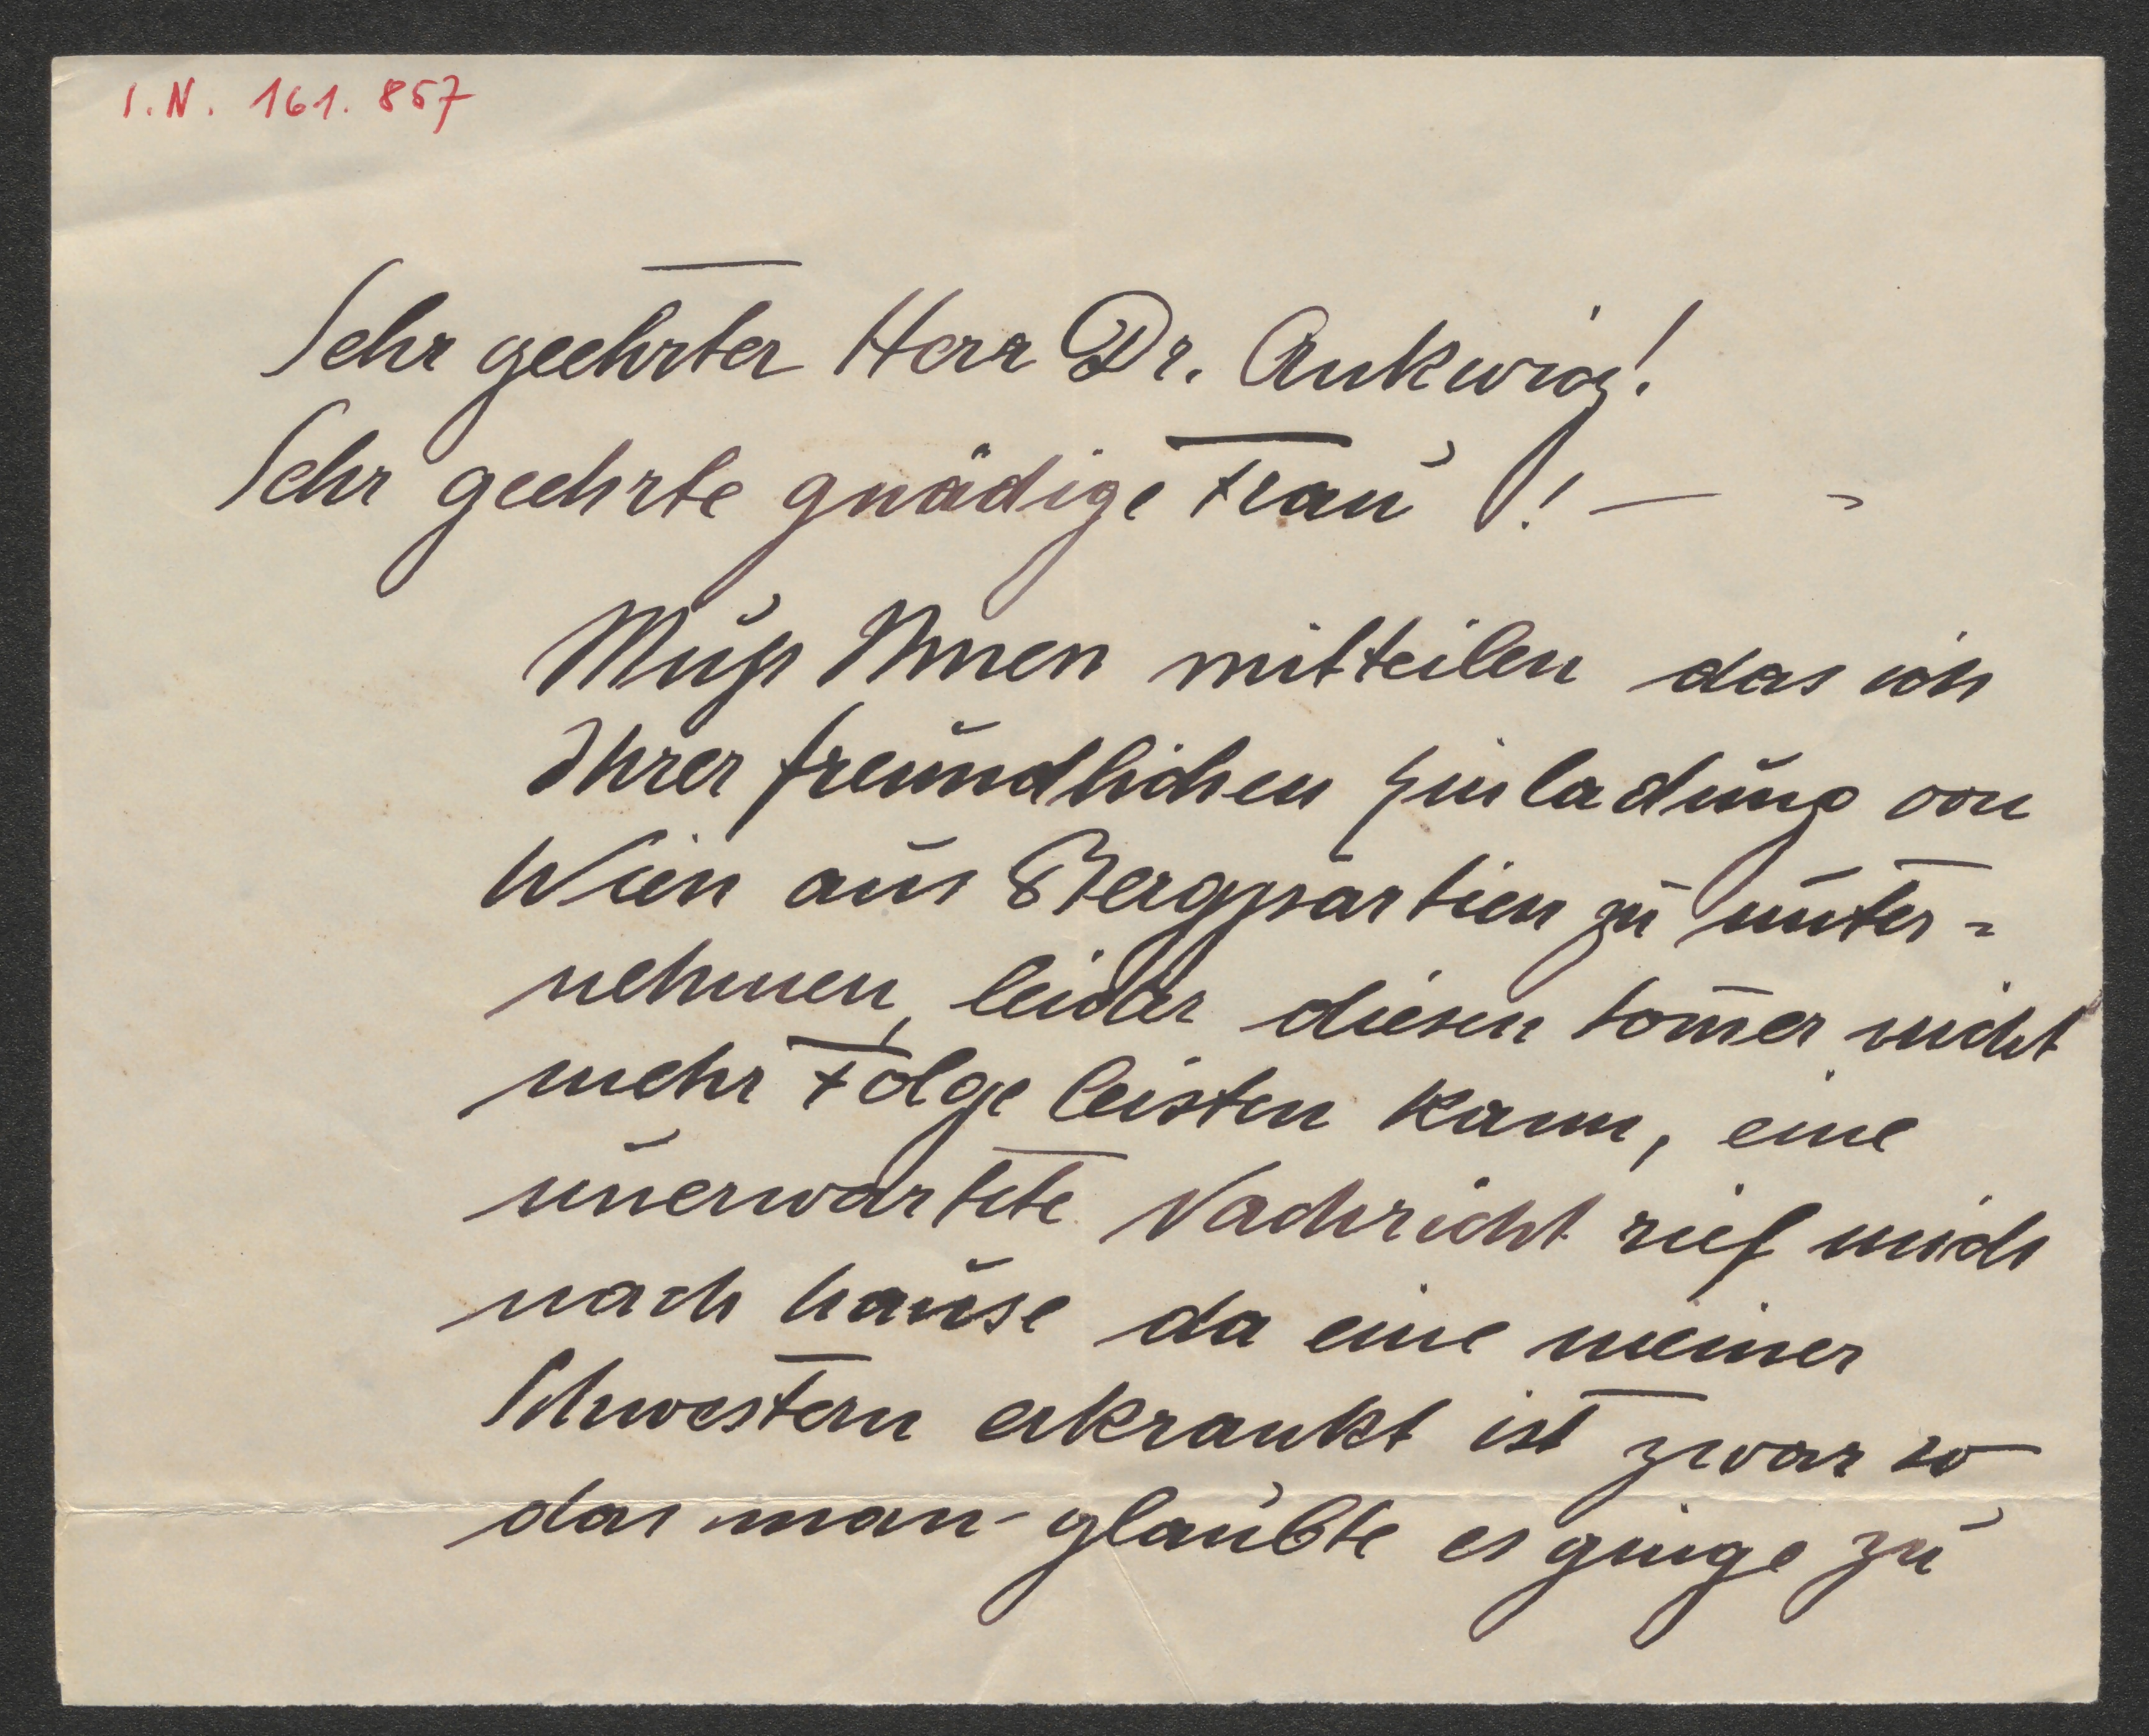 I.N. 161.857
Sehr geehrter Herr Dr. Ankwicz!
Sehr geehrte gnädige Frau! —
Muß Ihnen mitteilen das ich
Ihrer freundlichen Einladung von
Wien aus Bergpartien zu unter=
nehmen, leider diesen Som̅er nicht
mehr Folge leisten kann, eine
unerwartete Nachricht rief mich
nach hause da eine meiner
Schwestern erkrankt ist zwar so
das man glaubte es ginge zu